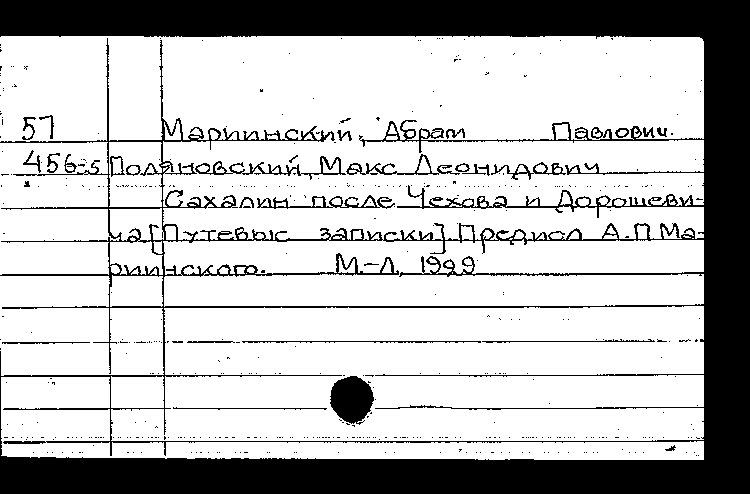 57 Мариинский, Абрам Павлович.
456-5 Поляновский, Макс Леонидович
Сахалин после Чехова и Дорошеви-
ча [Путевые записки]. Предисл А.П Ма-
риинского. М.-Л., 1929